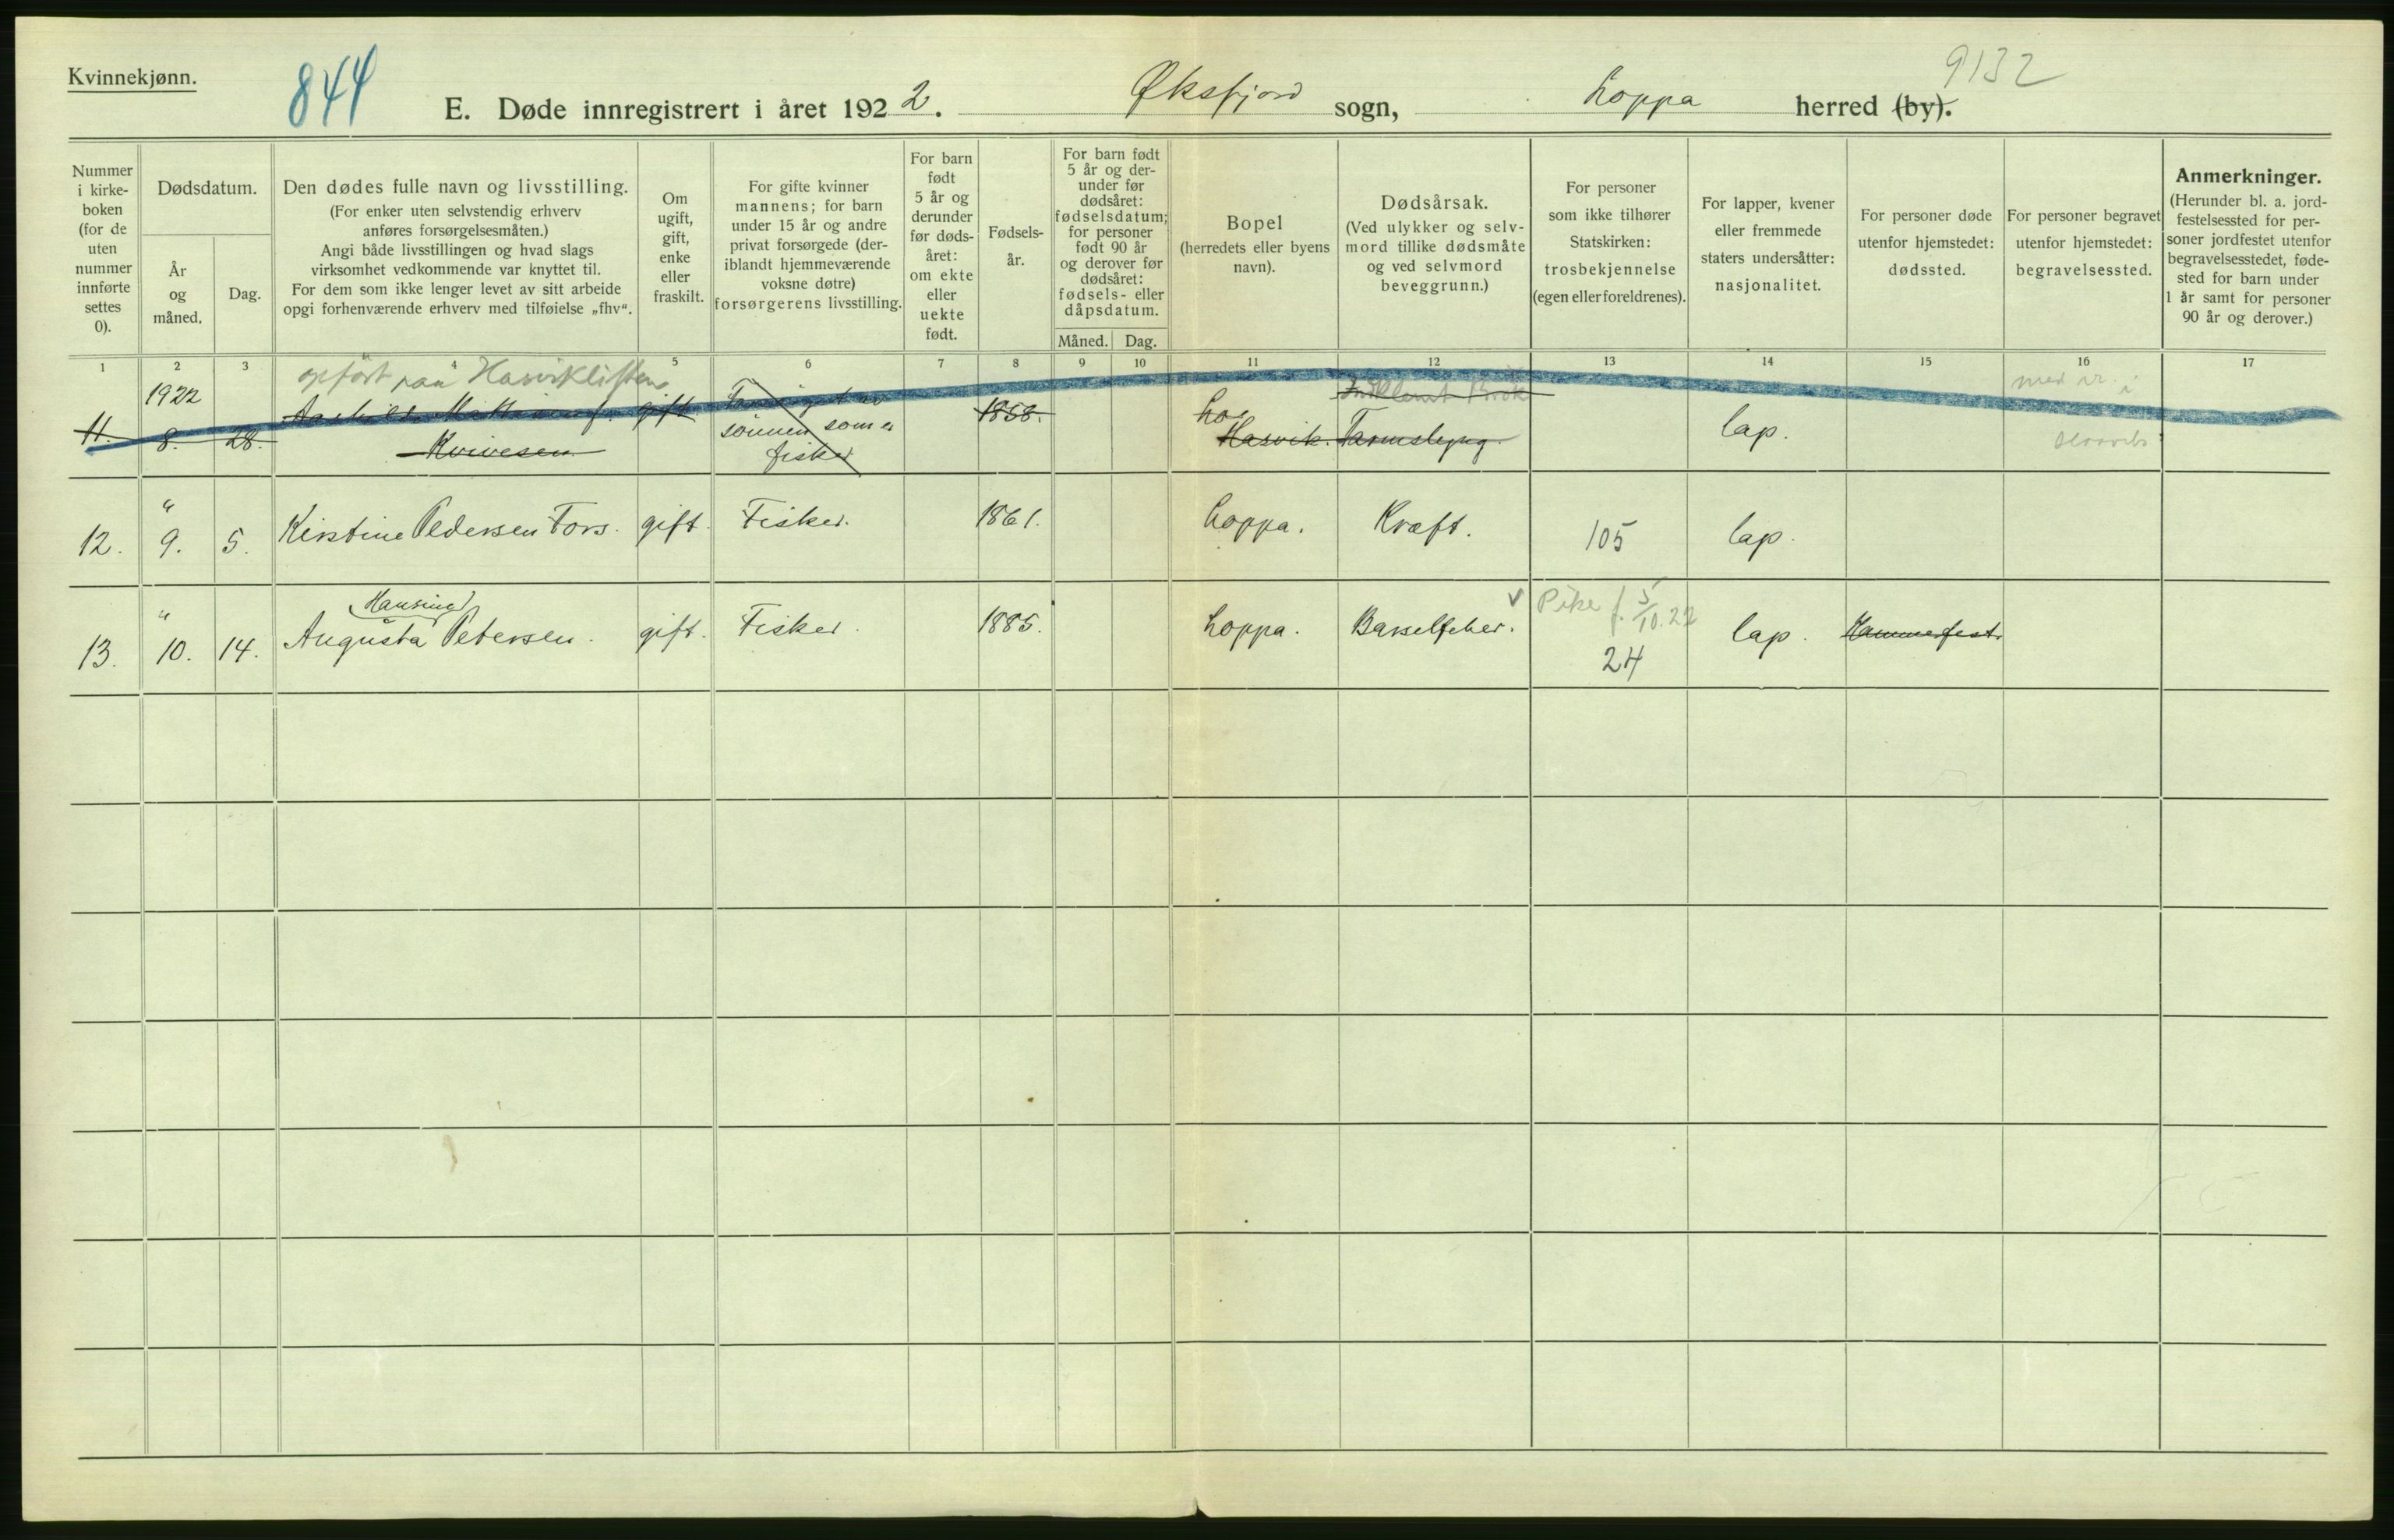 Kvinnekjønn.
844
9132
E. Døde innregistrert i året 1922. Øksfjord sogn, Loppa herred (by).
Nummer i kirke-boken (for de uten nummer innførte settes 0).
Dødsdatum.
År og måned.
Dag.
Den dødes fulle navn og livsstilling.
(For enker uten selvstendig erhverv anføres forsørgelsesmåten.)
Angi både livsstillingen og hvad slags virksomhet vedkommende var knyttet til.
For dem som ikke lenger levet av sitt arbeide opgi forhenværende erhverv med tilføielse „fhv“.
Om ugift, gift, enke eller fraskilt.
For gifte kvinner mannens; for barn under 15 år og andre privat forsørgede (der-iblandt hjemmeværende voksne døtre) forsørgerens livsstilling.
For barn født 5 år og derunder før døds-året: om ekte eller uekte født.
Fødsels-år.
For barn født 5 år og der-under før dødsåret: fødselsdatum; for personer født 90 år og derover før dødsåret: fødsels- eller dåpsdatum.
Måned. Dag.
Bopel (herredets eller byens navn).
Dødsårsak.
(Ved ulykker og selv-mord tillike dødsmåte og ved selvmord beveggrunn.)
For personer som ikke tilhører Statskirken: trosbekjennelse (egen eller foreldrenes).
For lapper, kvener eller fremmede staters undersåtter: nasjonalitet.
For personer døde utenfor hjemstedet: dødssted.
For personer begravet utenfor hjemstedet: begravelsessted.
Anmerkninger.
(Herunder bl. a. jord-festelsessted for per-soner jordfestet utenfor begravelsesstedet, føde-sted for barn under 1 år samt for personer 90 år og derover.)
1 2 3 4 5 6 7 8 9 10 11 12 13 14 15 16 17
opført paa Hasviklisten
1922
11. 8. 28. gift. sønnen som er fisker 1858. Hasvik. Tarmslyng. lap.
12. " 9. 5. Kirstine Pedersen Fors. gift. Fisker. 1861. Loppa. Kræft. 105 lap.
Hansine
13. " 10. 14. Augusta Petersen. gift. Fisker. 1885. Loppa. Barselfeber. v Pike f. 5/10.22 24 lap. Hammerfest.